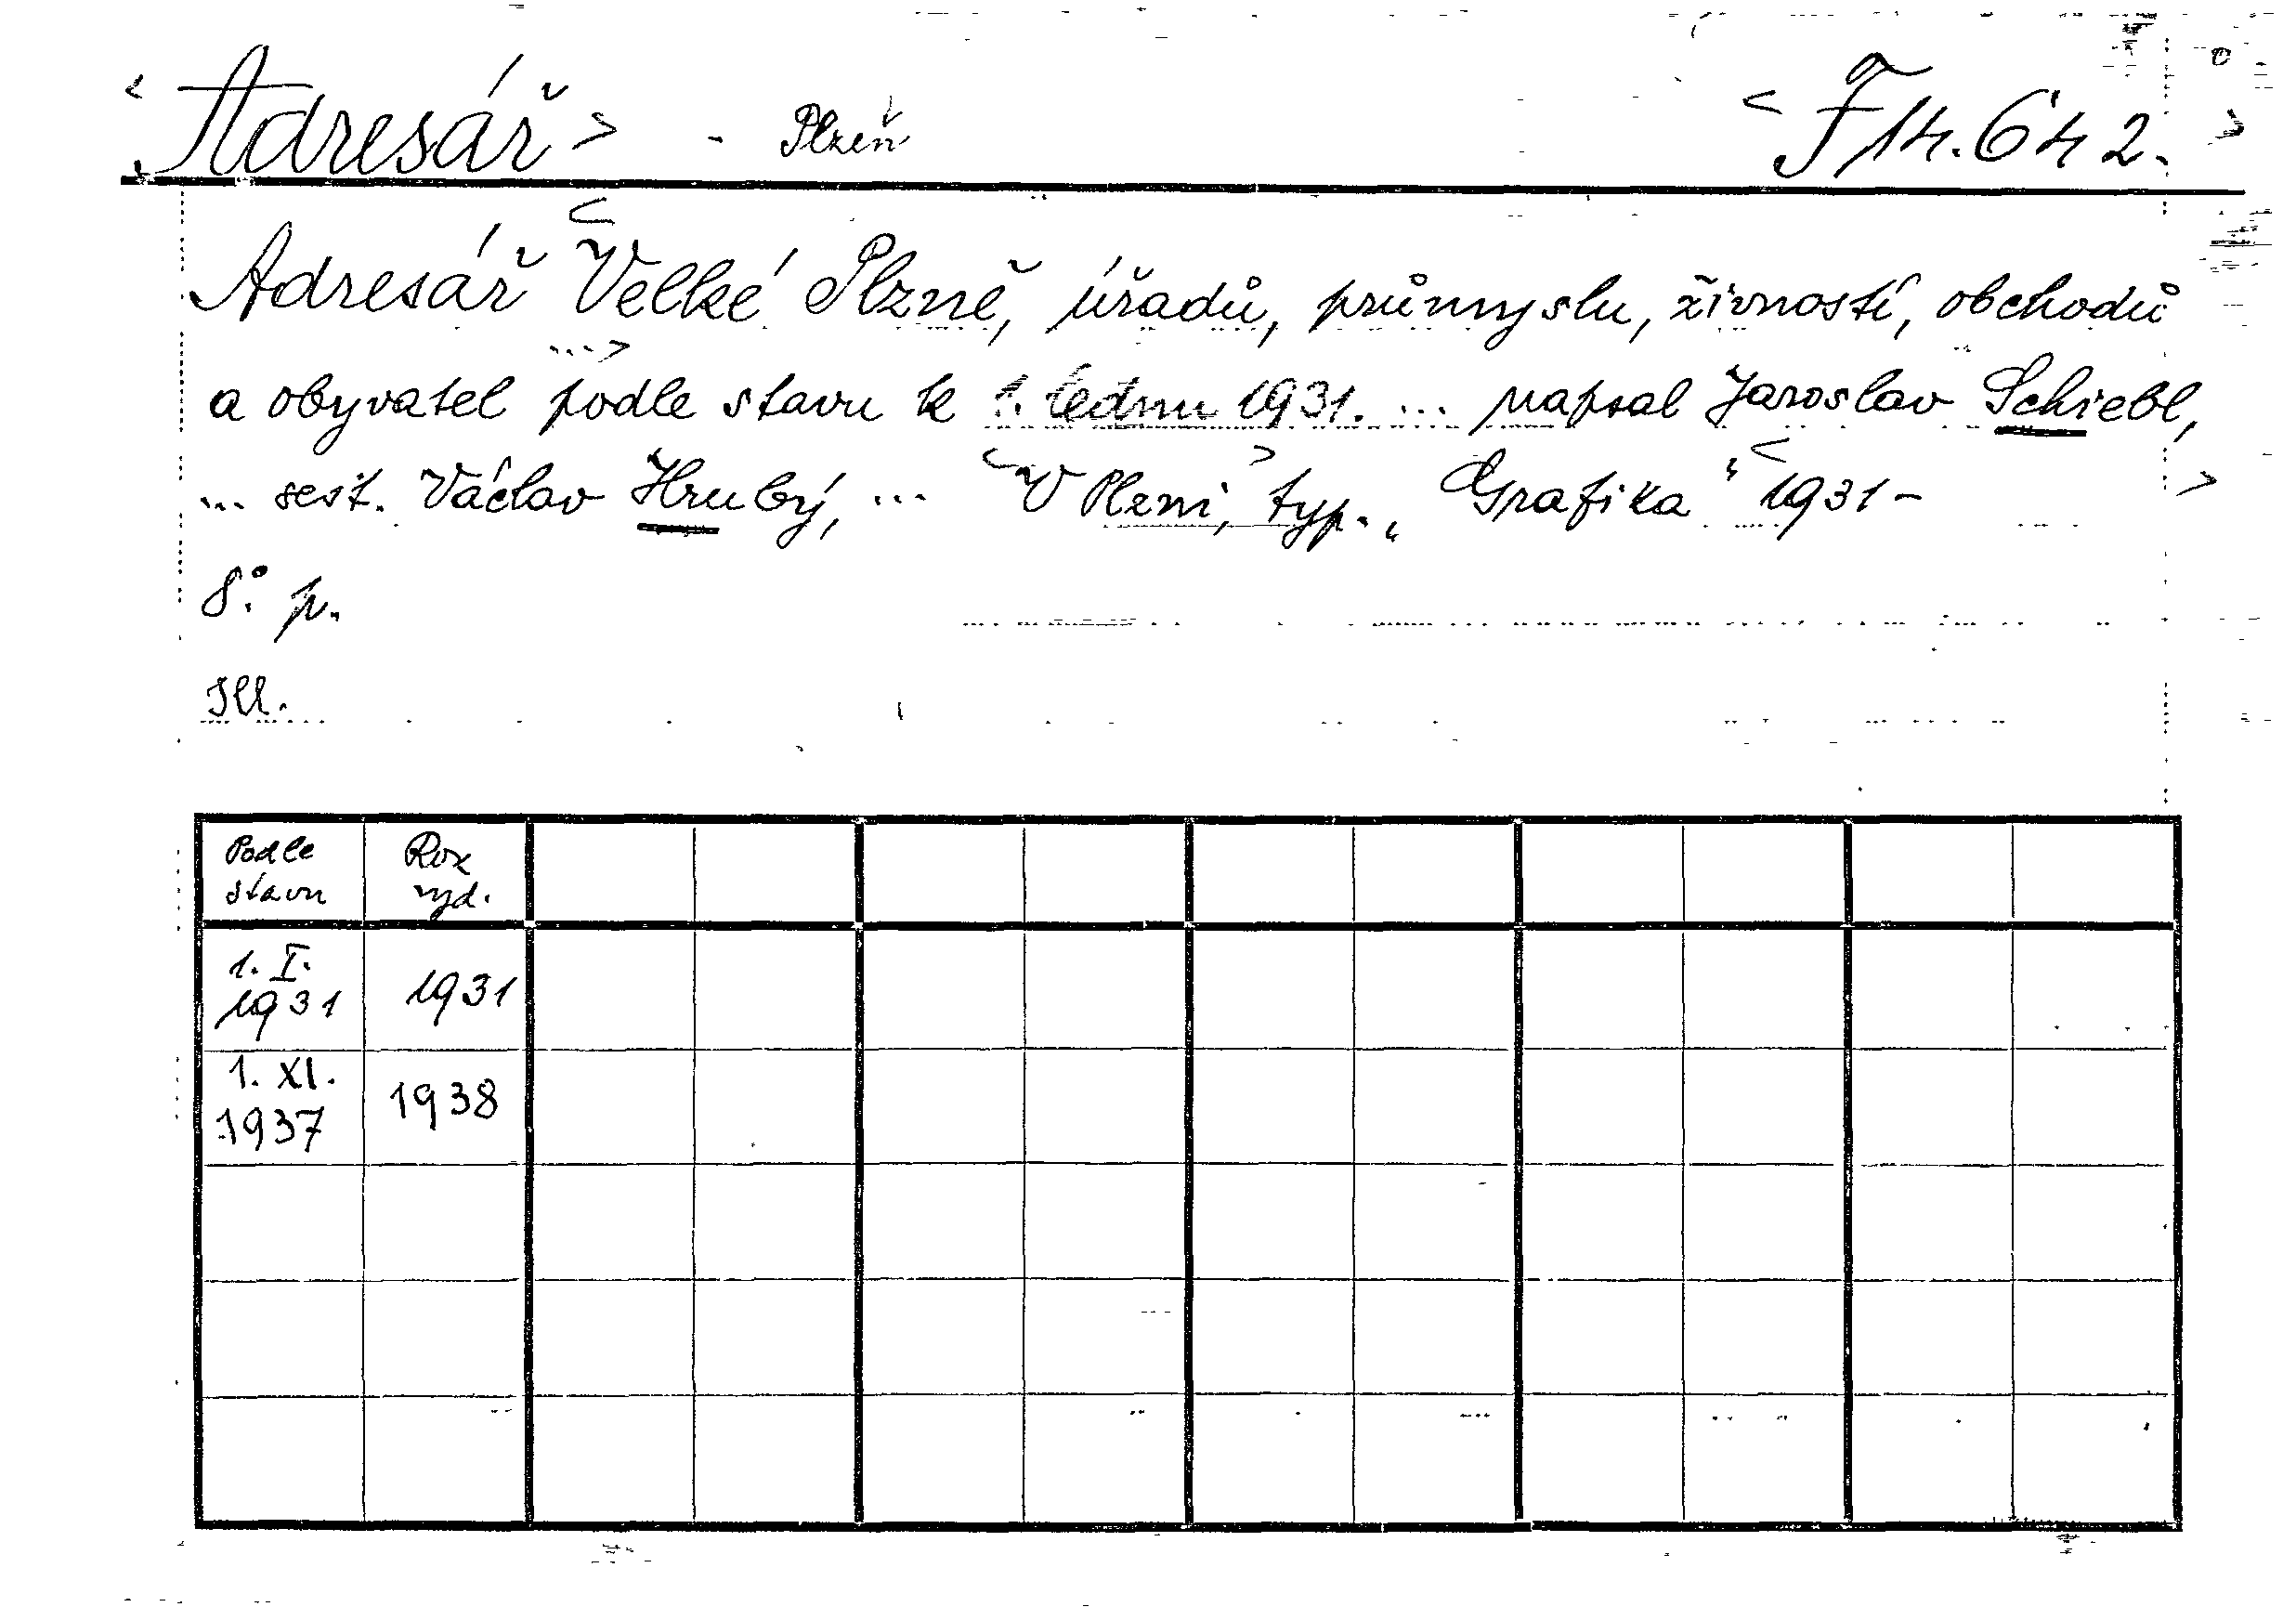 <Adresář> - Plzeň <F 14.642.>
Adresář <Velké Plzně, úřadů, průmyslu, živností, obchodů
a obyvatel ...> podle stavu k 1. lednu 1931. ... napsal Jaroslav Schiebl,
... sest. Václav Hrubý, ... <V Plzni,> typ. „Grafika“ <1931- >
8°. p.
Ill.
Podle stavu Rok vyd.
1. I. 1931 1931
1. XI. 1937 1938